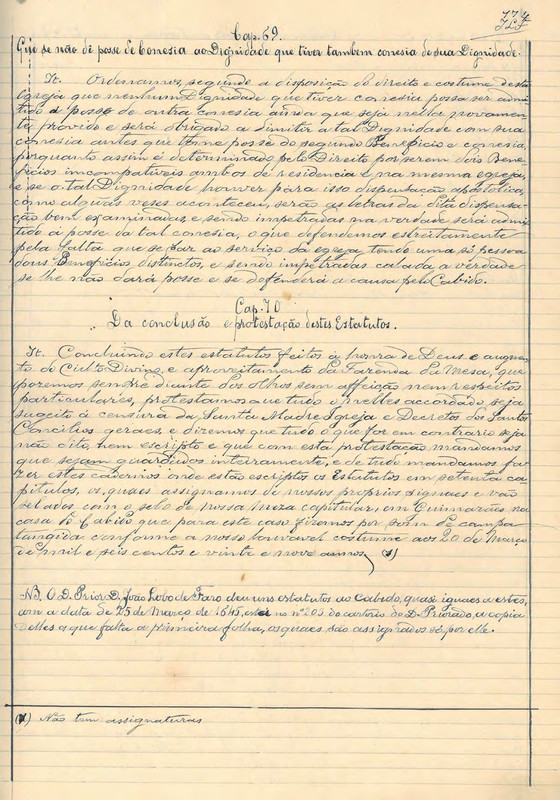 Cap. 69.
Que se não dê posse de Conesia ao Dignidade que tiver tambem conesia de sua Dignidade.
It. Ordenamos, segundo a disposição do direito e costume desta
Igreja que nenhum Dignidade que tiver conesia possa ser admit-
tido á posse de outra conesia ainda que seja nella novamen-
te provido e será obrigado a dimitir a tal Dignidade com sua
conesia antes que tome posse do segundo Beneficio e conesia,
porquanto assim é determinado pelo Direito por serem dois Bene-
ficios imcompativeis ambos de residencia e na mesma egreja,
e se o tal Dignidade houver para isso dispensação apostolica,
como algumas veses aconteceu, serão as letras da dita dispensa-
ção bem examinadas e sendo impetradas na verdade será admit-
tido á posse da tal conesia, o que defendemos estreitamente
pela falta que se faz ao serviço da egreja, tendo uma só pessoa
dous Beneficios distinctos, e sendo impetradas calada a verdade
se lhe não dará posse e se defenderá a causa pelo Cabido.
Cap. 70
Da conclusão e protestação destes Estatutos.
It. Concluindo estes estatutos feitos á honra de Deus e augmen-
to do Culto Divino, e aproveitamento da Fazenda da Mesa, que
pozemos sempre diante dos olhos sem affeição nem respeitos
particulares, protestamos que tudo o nelles accordado, seja
sugeito á censura da Santa Madre Igreja e Decretos dos Santos
Concilios geraes, e diremos que tudo o que for em contrario seja
não dito, nem escripto e que com esta protestação mandamos
que sejam guardados inteiramente, e de tudo mandamos fa-
zer estes cadernos onde estão escriptos os Estatutos em setenta ca-
pitulos, os quaes assignamos de nossos proprios signaes e vão
selados com o selo de nossa Meza capitular, em Guimarães na
casa do Cabido que para este caso fizemos por som de campa
tangida conforme a nosso louvavel costume aos 20 de Março
de mil e seis centos e vinte e nove annos (1)
N.B. O D. Prior D. João Lobo de Faro deu uns estatutos ao Cabido, quasi iguaes a estes,
com a data de 25 de Março de 1645, no nº 205 do cartorio do D. Priorado, a copia
delles a que falta a primeira folha, os quaes são assignados só por elle.
(1) Não tem assignaturas